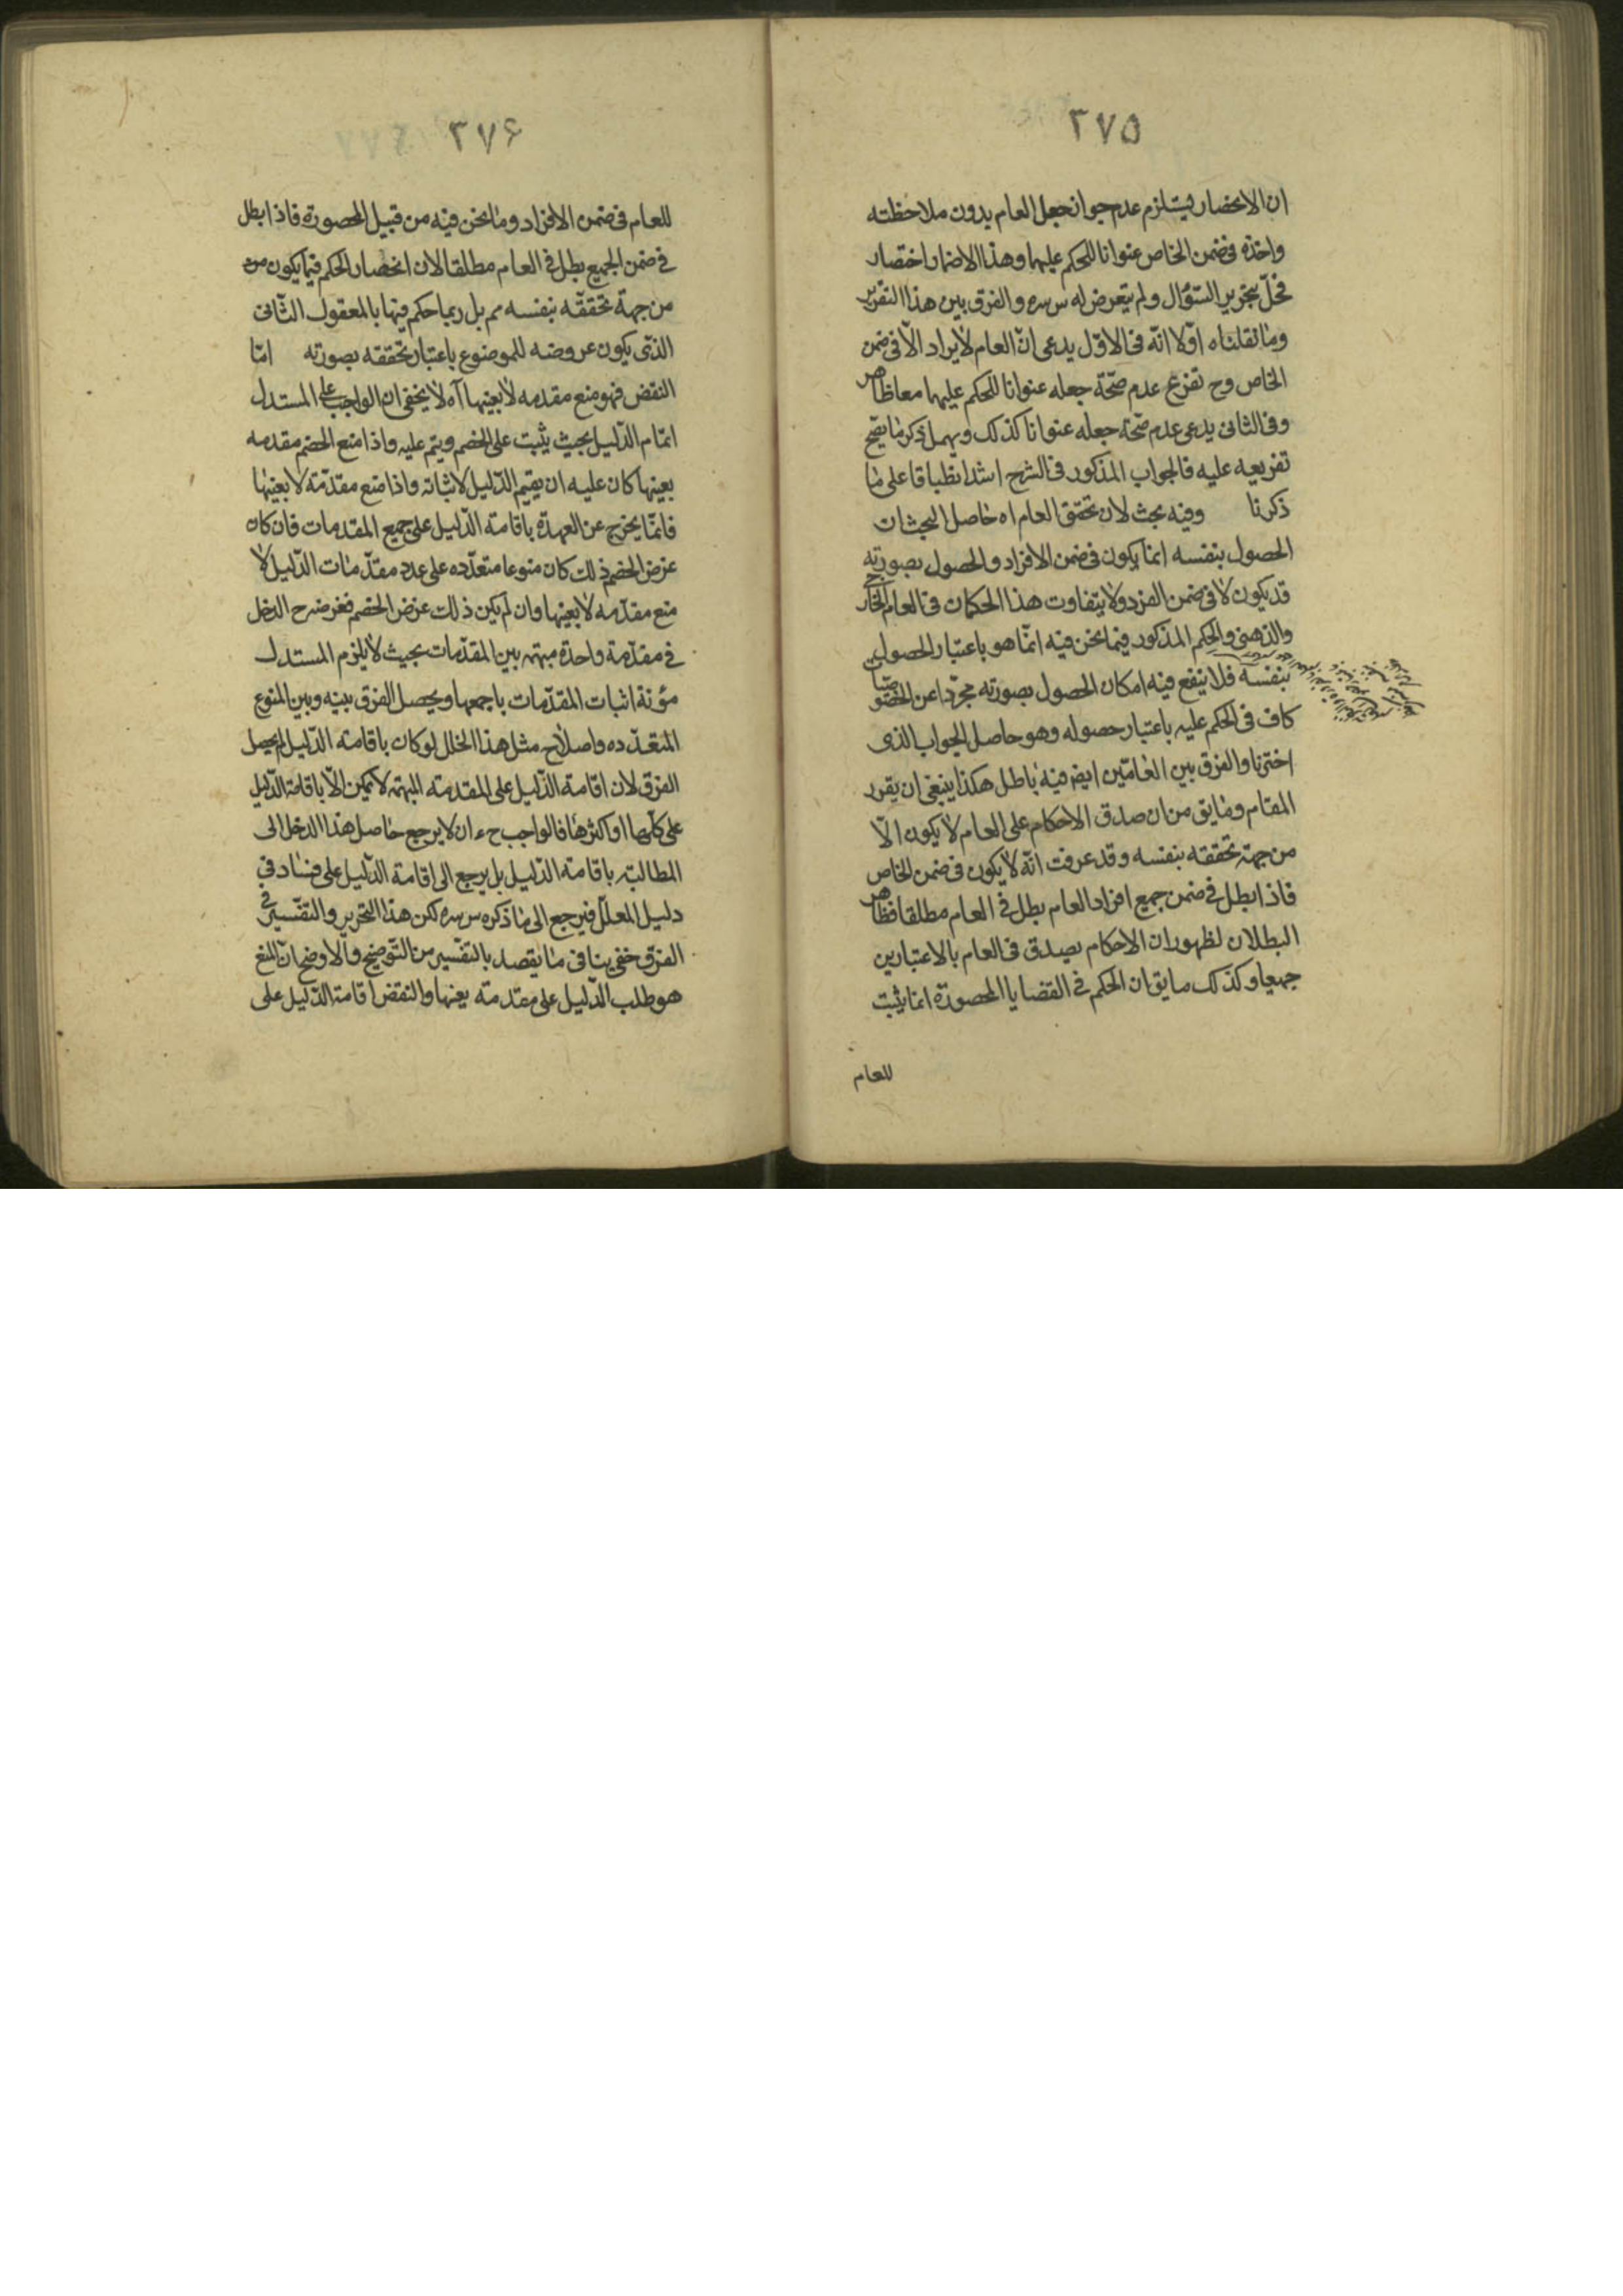 ٣٧٥
ان الانحصار يستلزم عدم جواز جعل العام بدون ملاحظته
واخذه فى ضمن الخاص عنوانا للحكم عليها وهذا الاضمار اختصار
مخلّ بتحرير السّؤال ولم يتعرض له س سره والفرق بين هذا التقرير
وما نقلناه اوّلا انّه فى الاوّل يدعى انّ العام لا يراد الّا فى ضمن
الخاص وح تفرع عدم صحّة جعله عنوانا للحكم عليهما معا ظاهر
وفى الثانى يدعى عدم صحّة جعله عنوانا كذلك ويهمل ذكر ما يصح
تفريعه عليه فالجواب المذكور فى الشرح اشد انطباقا على ما
ذكرنا وفيه بحث لان تحقق العام اه حاصل البحث ان
الحصول بنفسه انما يكون فى ضمن الافراد والحصول بصورته
قد يكون لا فى ضمن الفرد ولا يتفاوت هذا الحكمان فى العام الخارجى
والذهنى والحكم المذكور فيما نحن فيه انّما هو باعتبار الحصول
بنفسه فلا ينفع فيه امكان الحصول بصورته مجرّدا عن الخصوصيات
كاف فى الحكم عليه باعتبار حصوله وهو حاصل الجواب الذى
اخترنا والفرق بين العامّين ايض فيه باطل هكذا ينبغى ان يقرر
المقام وما يق من ان صدق الاحكام على العام لا يكون الّا
من جهة تحققه بنفسه وقد عرفت انّه لا يكون فى ضمن الخاص
فاذا بطل فى ضمن جميع افراد العام بطل فى العام مطلقا فظاهر
البطلان لظهور ان الاحكام يصدق فى العام بالاعتبارين
جميعا وكذلك ما يق ان الحكم فى القضايا المحصورة انما يثبت
للعام
٣٧۶
للعام فى ضمن الافراد وما نحن فيه من قبيل المحصورة فاذا بطل
فى ضمن الجميع بطل فى العام مطلقا لان انحصار الحكم فيما يكون من
من جهة تحققه بنفسه مم بل ربما حكم فيها بالمعقول الثّانى
الذّى يكون عروضه للموضوع باعتبار تحققه بصورته امّا
النقض فهو منع مقدمه لا بعينها آه لا يخفى ان الواجب على المستدل
اتمام الدّليل بحيث يثبت على الخصم ويتم عليه واذا منع الخصم مقدمه
بعينها كان عليه ان يقيم الدّليل لاثباته واذا منع مقدّمة لا بعينها
فانّما يخرج عن العهدة باقامة الدّليل على جميع المقدمات فان كان
غرض الخصم ذلك كان منوعا متعدّده على عدد مقدّمات الدّليل لا
منع مقدّمه لا بعينها وان لم يكن ذلك غرض الخصم فغرضه ح الدخل
فى مقدّمة واحدة مبهمه بين المقدّمات بحيث لا يلزم المستدل
مؤنة اثبات المقدّمات باجمعها ويحصل الفرق بينه وبين المنوع
المتعدّده واصلاح مثل هذا الخلل لو كان باقامة الدّليل لم يحصل
الفرق لان اقامة الدّليل على المقدمة المبهمه لا يمكن الّا باقامة الدّليل
على كلّها او اكثرها فالواجب ح ان لا يرجع حاصل هذا الدخل الى
المطالبة باقامة الدّليل بل يرجع الى اقامة الدّليل على فساد فى
دليل المعلّل فيرجع الى ما ذكره س سره لكن هذا التحرير والتفسير فى
الفرق خفى ينافى ما يقصد بالتفسير من التوضيح والاوضح ان المنع
هو طلب الدّليل على مقدمته بعينها والنقض اقامة الدّليل على